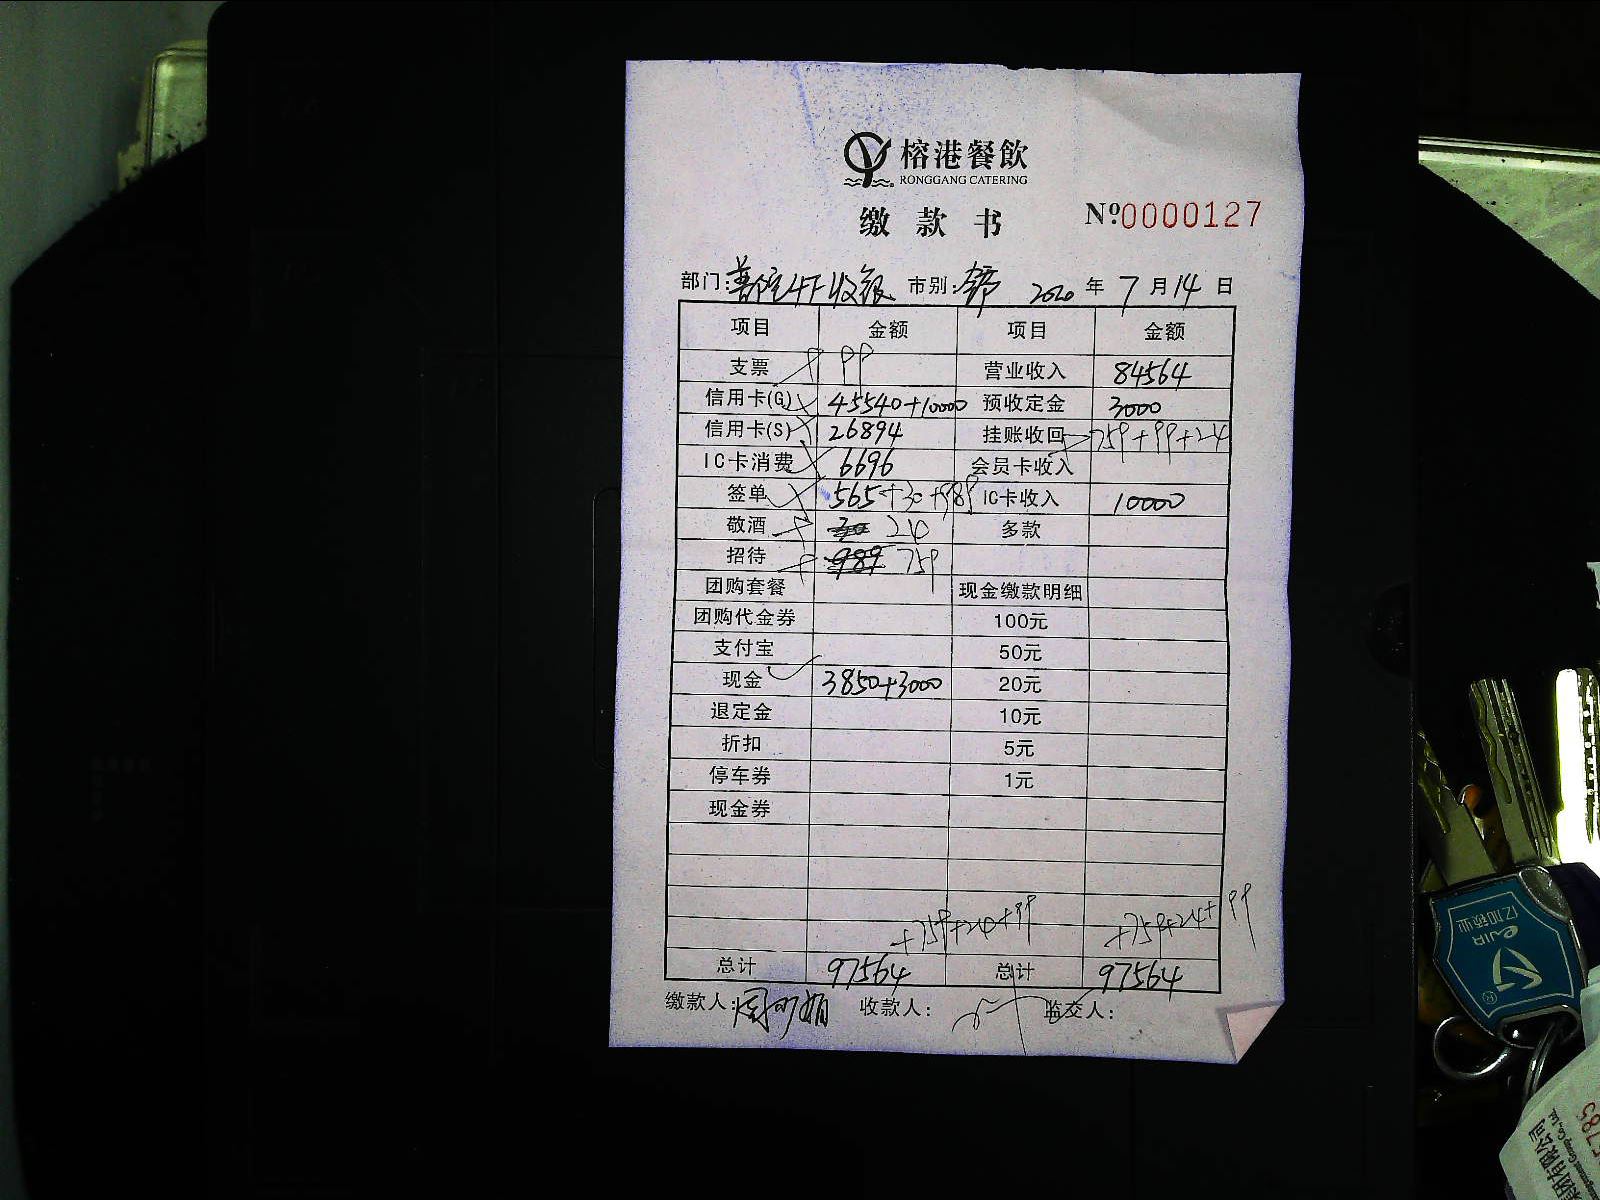 榕港餐飲
RONGGANG CATERING
缴款书 №0000127
部门:普陀4F收银 市别: 2020年7月14日
项目 金额 项目 金额
支票 99 营业收入 84564
信用卡(G) 45540+10000 预收定金 3000
信用卡(S) 26894 挂账收回 759+99+24
IC卡消费 6696 会员卡收入
签单 565+30+989 IC卡收入 10000
敬酒 30 24 多款
招待 989 759
团购套餐 现金缴款明细
团购代金券 100元
支付宝 50元
现金 3850+3000 20元
退定金 10元
折扣 5元
停车券 1元
现金券
+759+24+99 +759+24+99
总计 97564 总计 97564
缴款人: 收款人: 监交人:
亿加锁业
eJIA
®
5785
集团有限公司
Management Group Co., Ltd.